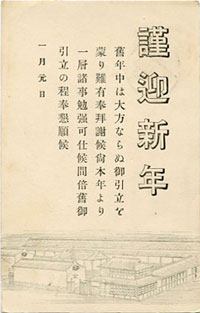 謹迎新年
舊年中は大方ならぬ御引立を
蒙り難有奉拜謝候尙本年より
一層諸事勉强可仕候間倍舊御
引立の程奉懇願候
一月元日